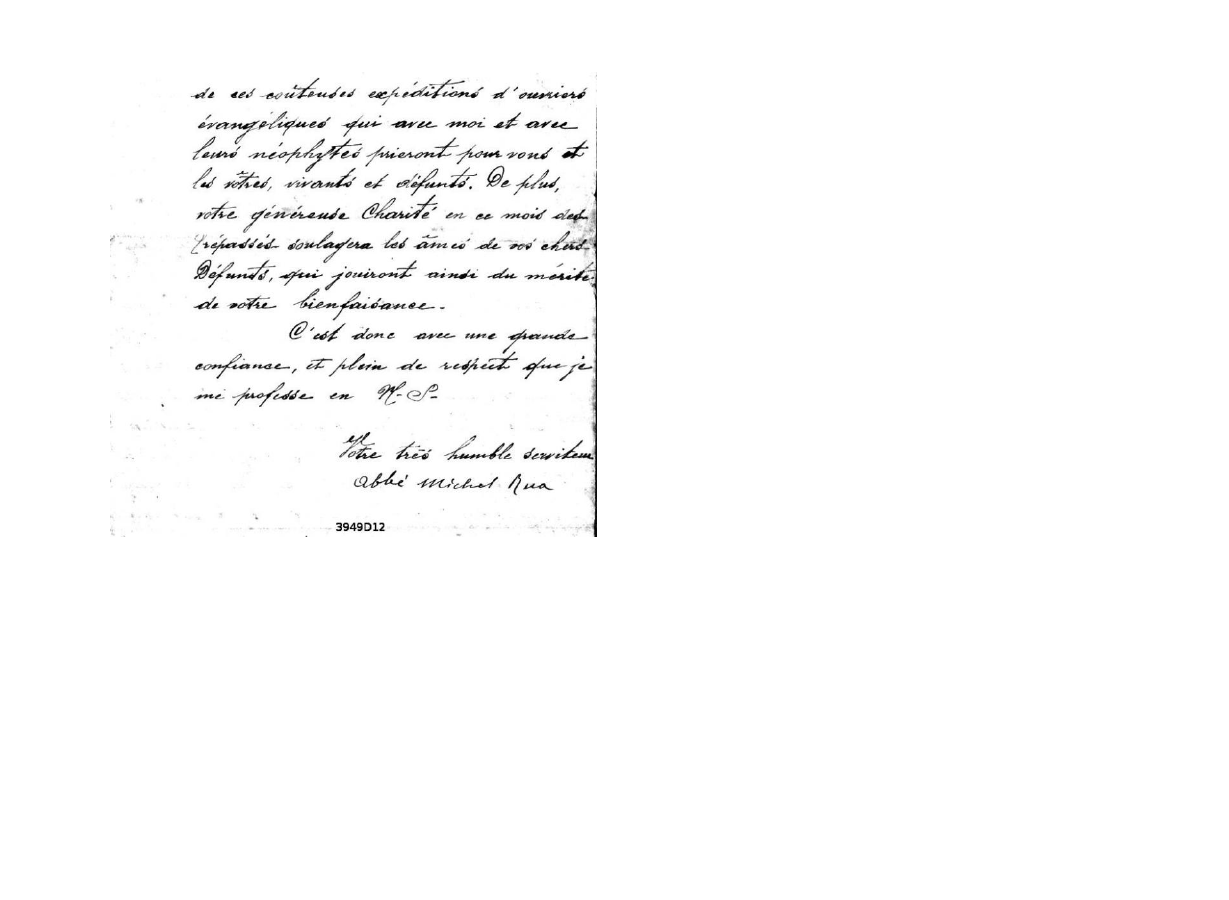 de ces coûteuses expéditions d'ouvriers
évangéliques qui avec moi et avec
leurs néophytes prieront pour vous et
les vôtres, vivants et défunts. De plus,
votre généreuse Charité en ce mois des
trépassés soulagera les âmes de vos chers
Défunts, qui jouiront ainsi du mérite
de votre bienfaisance.
C'est donc avec une grande
confiance, et plein de respect que je
me professe en N.S.
Votre très humble serviteur
Abbé Michel Rua
3949D12